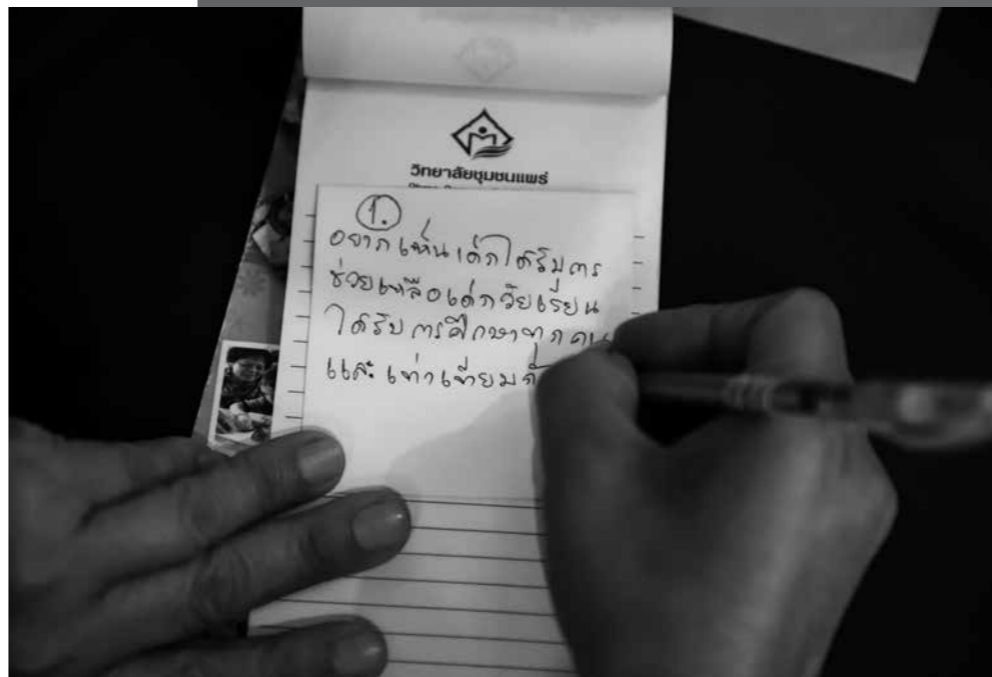 วิทยาลัยชุมชนแพร่
1.
อยากเห็นเด็กได้รับการ
ช่วยเหลือเด็กวัยเรียน
ได้รับการศึกษาทุกคน
และเท่าเทียมกั